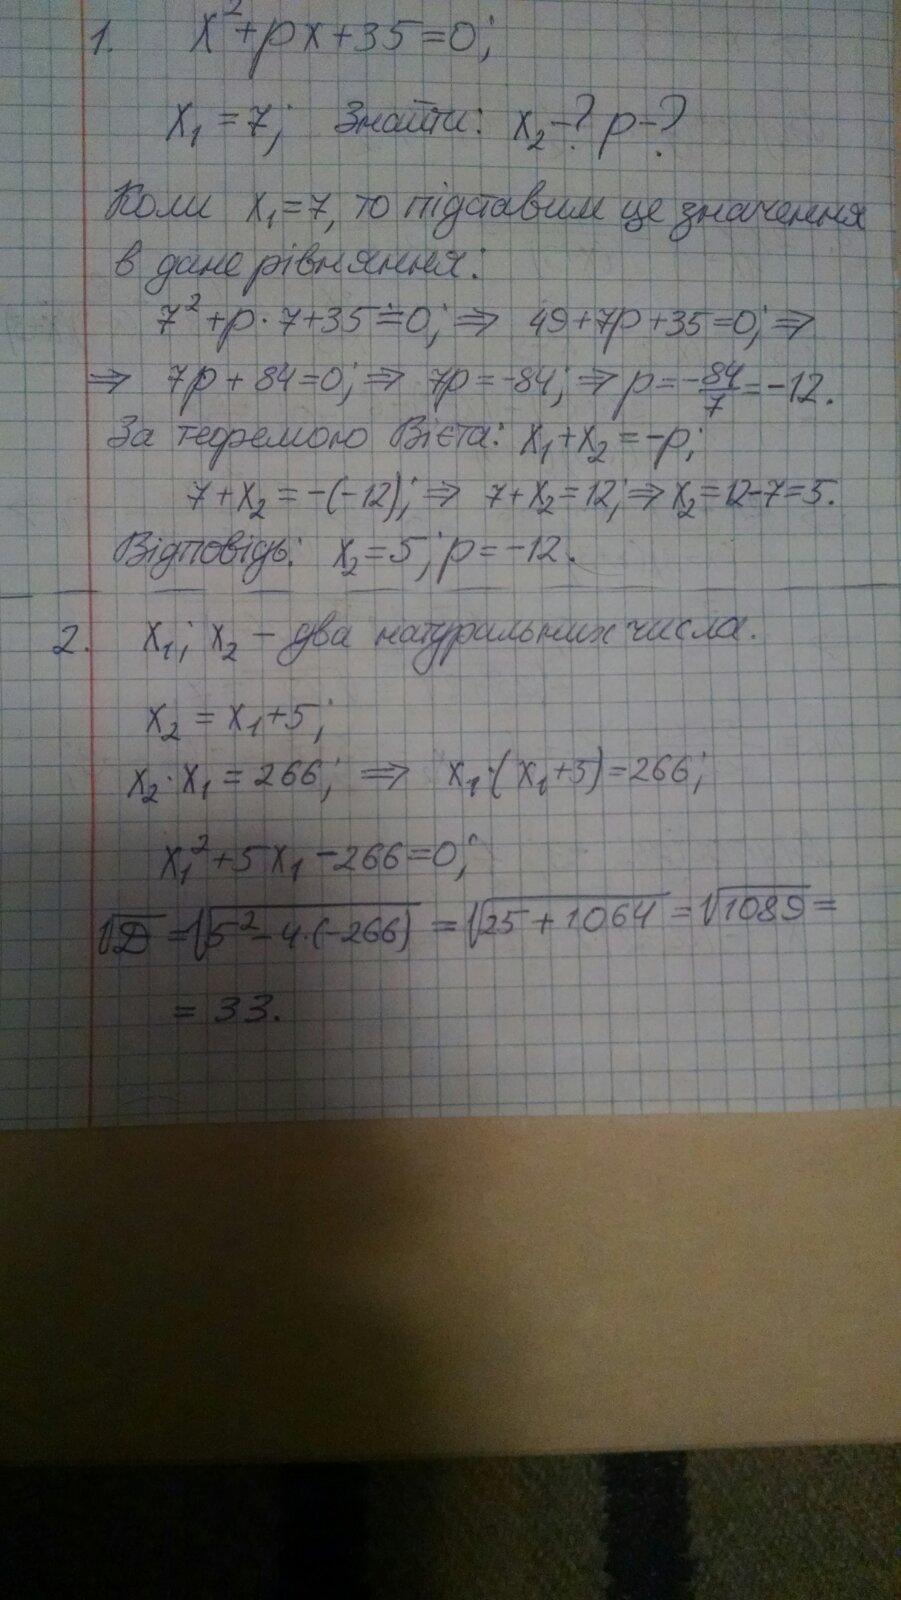 1. x²+px+35=0;
x₁=7; Знайти: x₂-? p-?
Коли x₁=7, то підставим це значення
в дане рівняння:
7²+p·7+35=0; ⇒ 49+7p+35=0; ⇒
⇒ 7p+84=0; ⇒ 7p=-84; ⇒ p=-84/7=-12.
За теоремою Вієта: x₁+x₂=-p;
7+x₂=-(-12); ⇒ 7+x₂=12; ⇒ x₂=12-7=5.
Відповідь: x₂=5; p=-12.
2. x₁; x₂ - два натуральних числа.
x₂=x₁+5;
x₂·x₁=266; ⇒ x₁·(x₁+5)=266;
x₁²+5x₁-266=0;
√D=√(5²-4·(-266))=√(25+1064)=√1089=
=33.